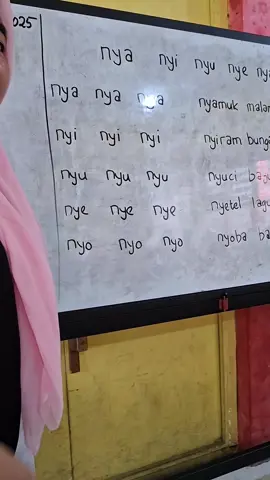 025
nya nyi nyu nye nya
nya nya nya nyamuk malam
nyi nyi nyi nyiram bunga
nyu nyu nyu nyuci
nye nye nye nyetel lagu
nyo nyo nyo nyoba